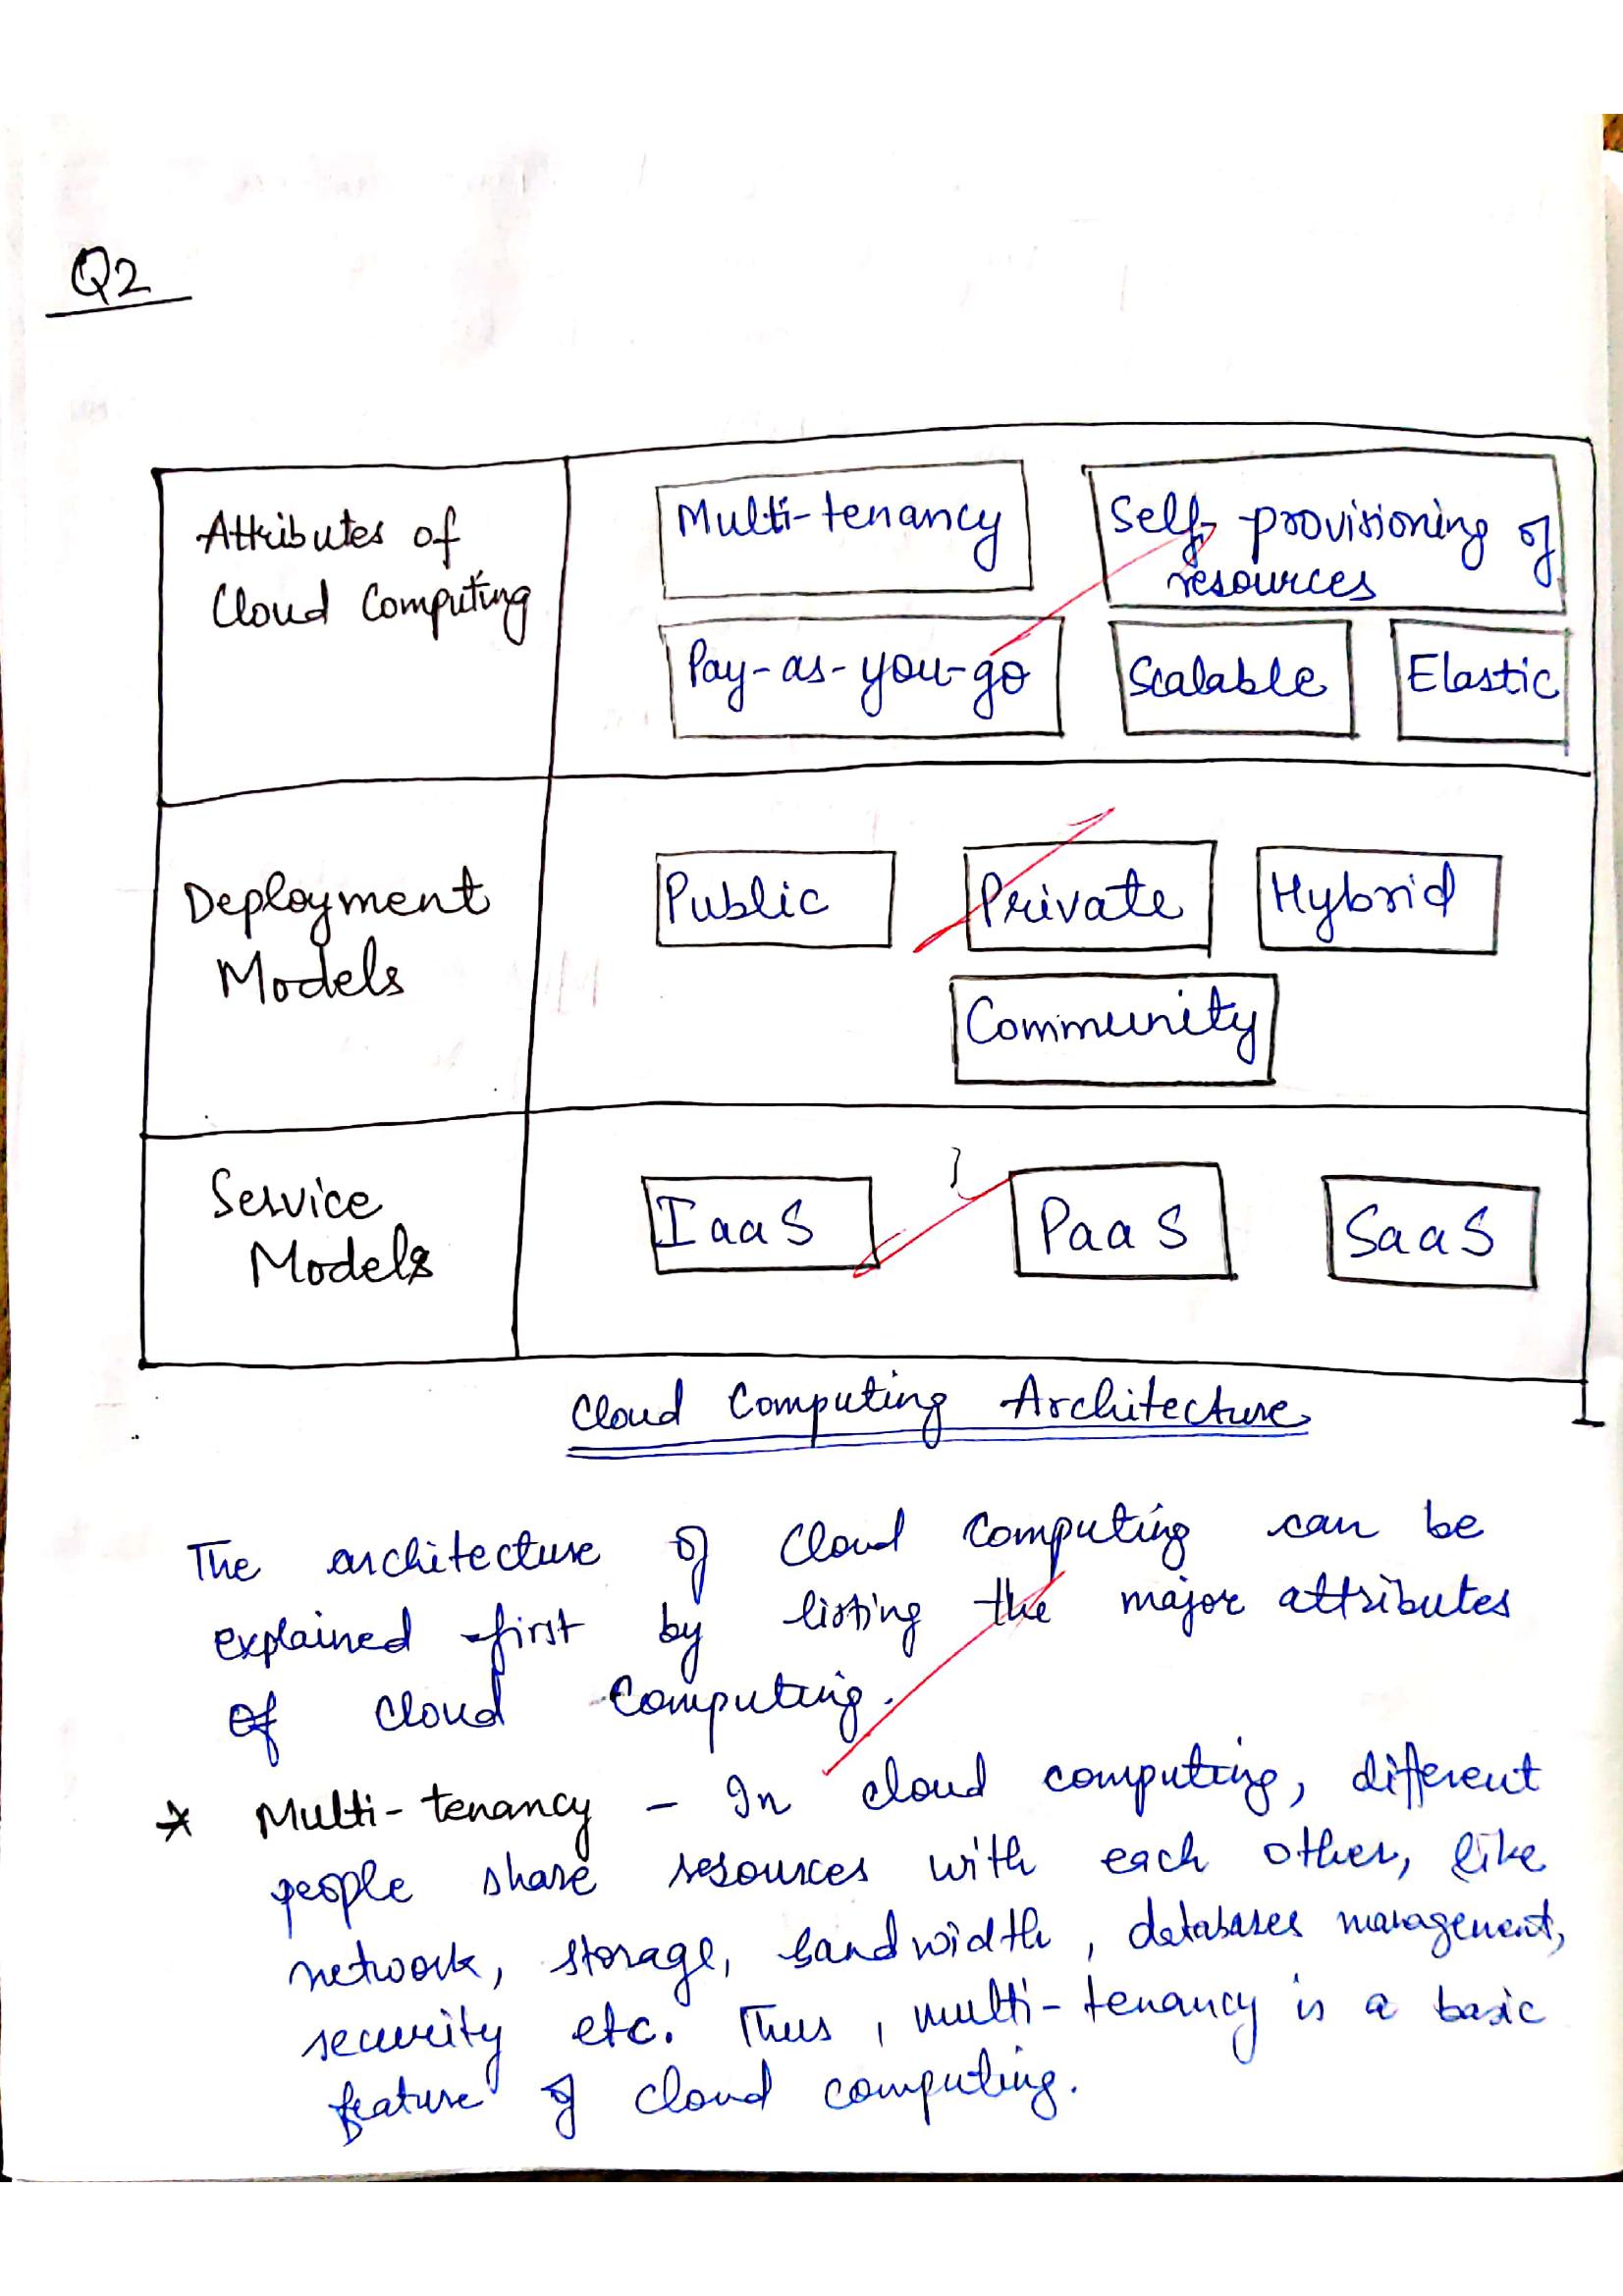 Q2
Attributes of
Cloud Computing
Multi-tenancy
Self-provisioning of
resources
Pay-as-you-go
Scalable
Elastic
Deployment
Models
Public
Private
Hybrid
Community
Service
Models
IaaS
PaaS
SaaS
Cloud Computing Architecture
The architecture of Cloud Computing can be
explained first by listing the major attributes
of cloud computing.
* Multi-tenancy - In cloud computing, different
people share resources with each other, like
network, storage, bandwidth, databases management,
security etc. Thus, multi-tenancy is a basic
feature of cloud computing.